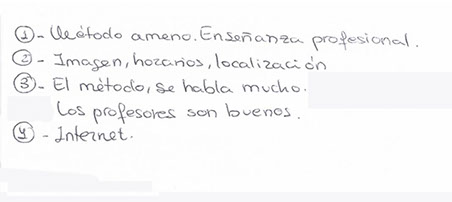 ①- Método ameno. Enseñanza profesional.
②- Imagen, horarios, localización
③- El método, se habla mucho.
Los profesores son buenos.
④ - Internet.